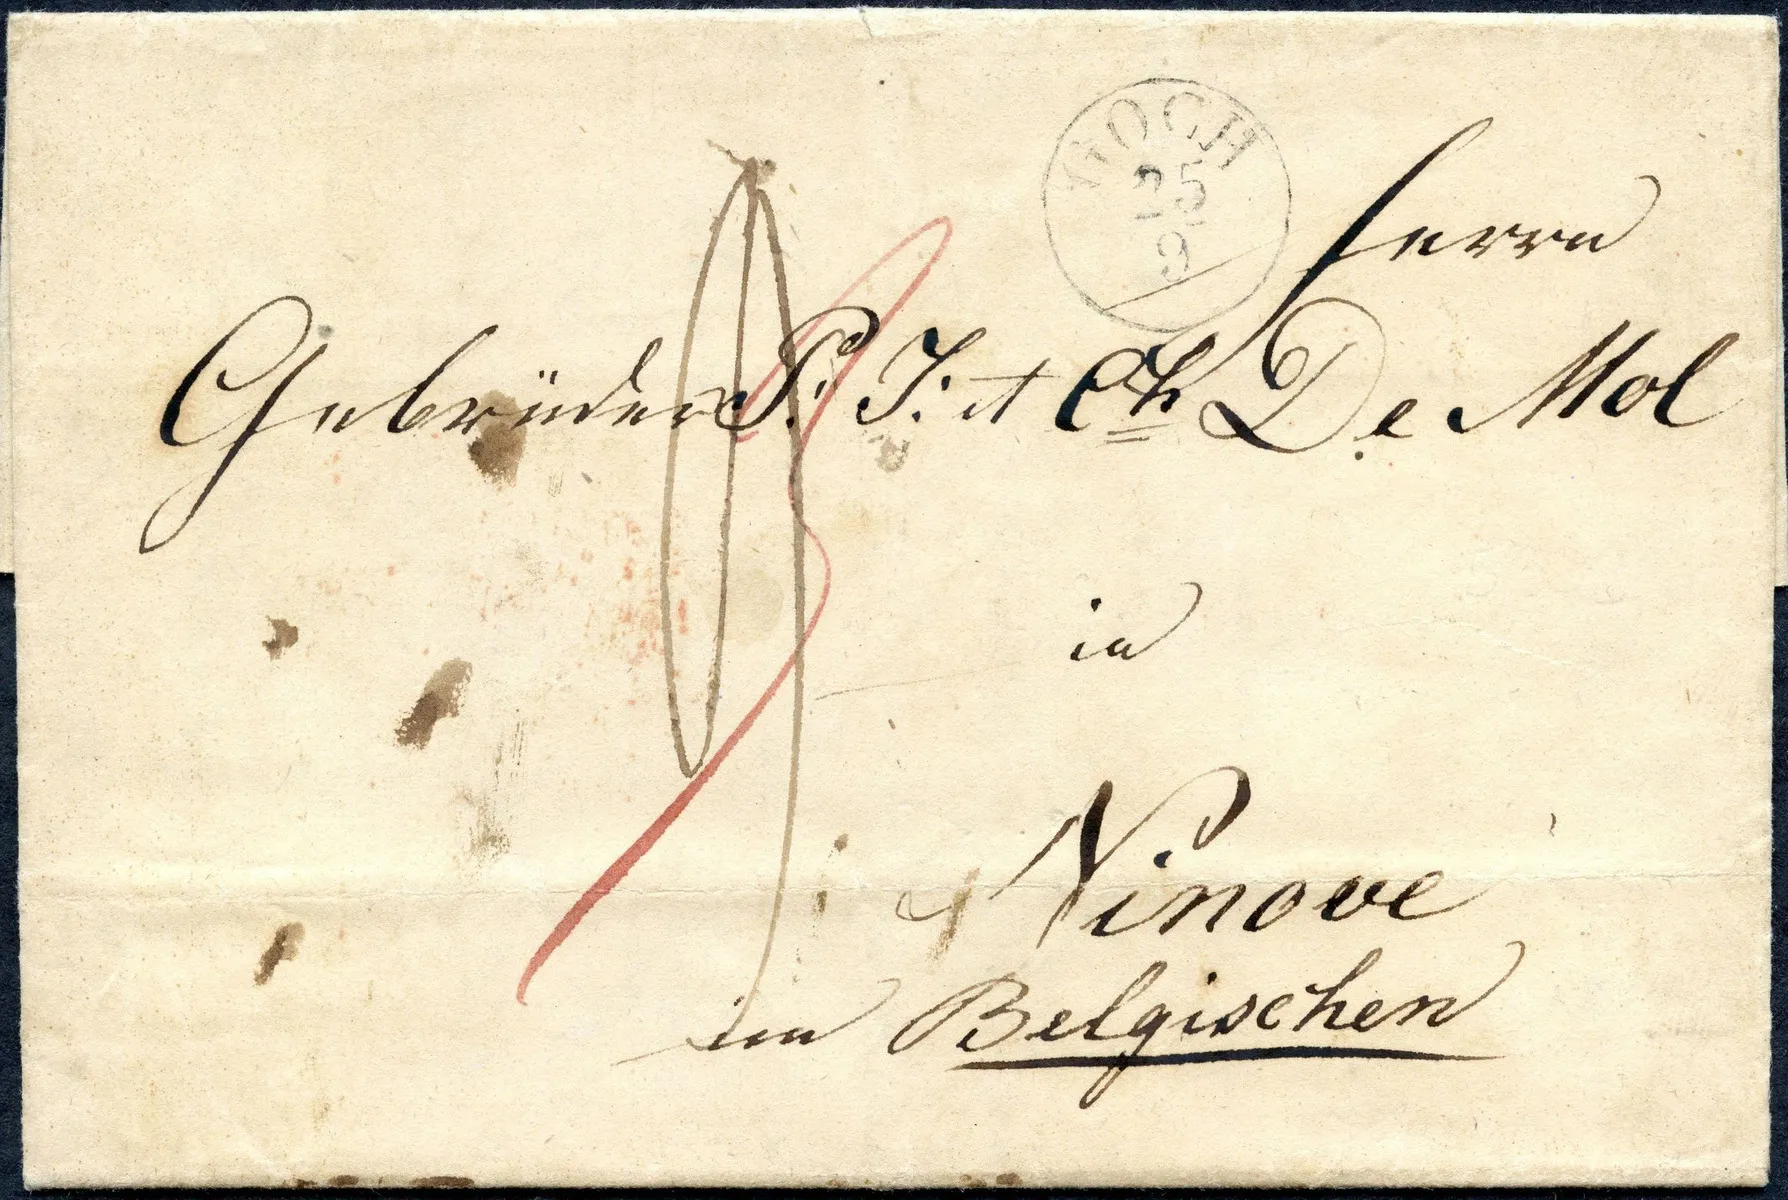 GOCH
25
9
Herrn
Gebrüder P. J. et Ch De Mol
in
Ninove
im Belgischen